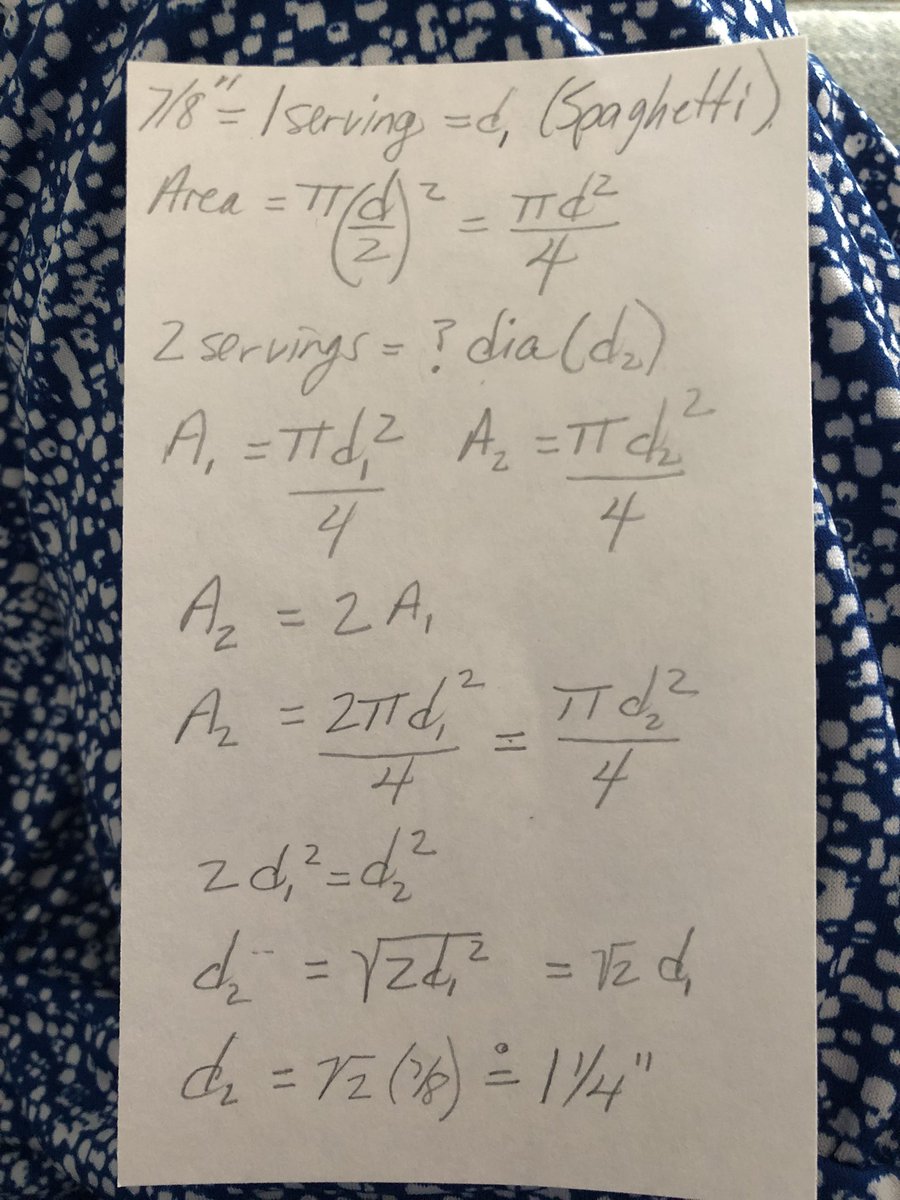 7/8" = 1 serving = d₁ (Spaghetti)
Area = π(d/2)² = πd²/4
2 servings = ? dia (d₂)
A₁ = πd₁²/4 A₂ = πd₂²/4
A₂ = 2A₁
A₂ = 2πd₁²/4 = πd₂²/4
2d₁² = d₂²
d₂ = √2d₁² = √2 d₁
d₂ = √2 (7/8) ≐ 1 1/4"